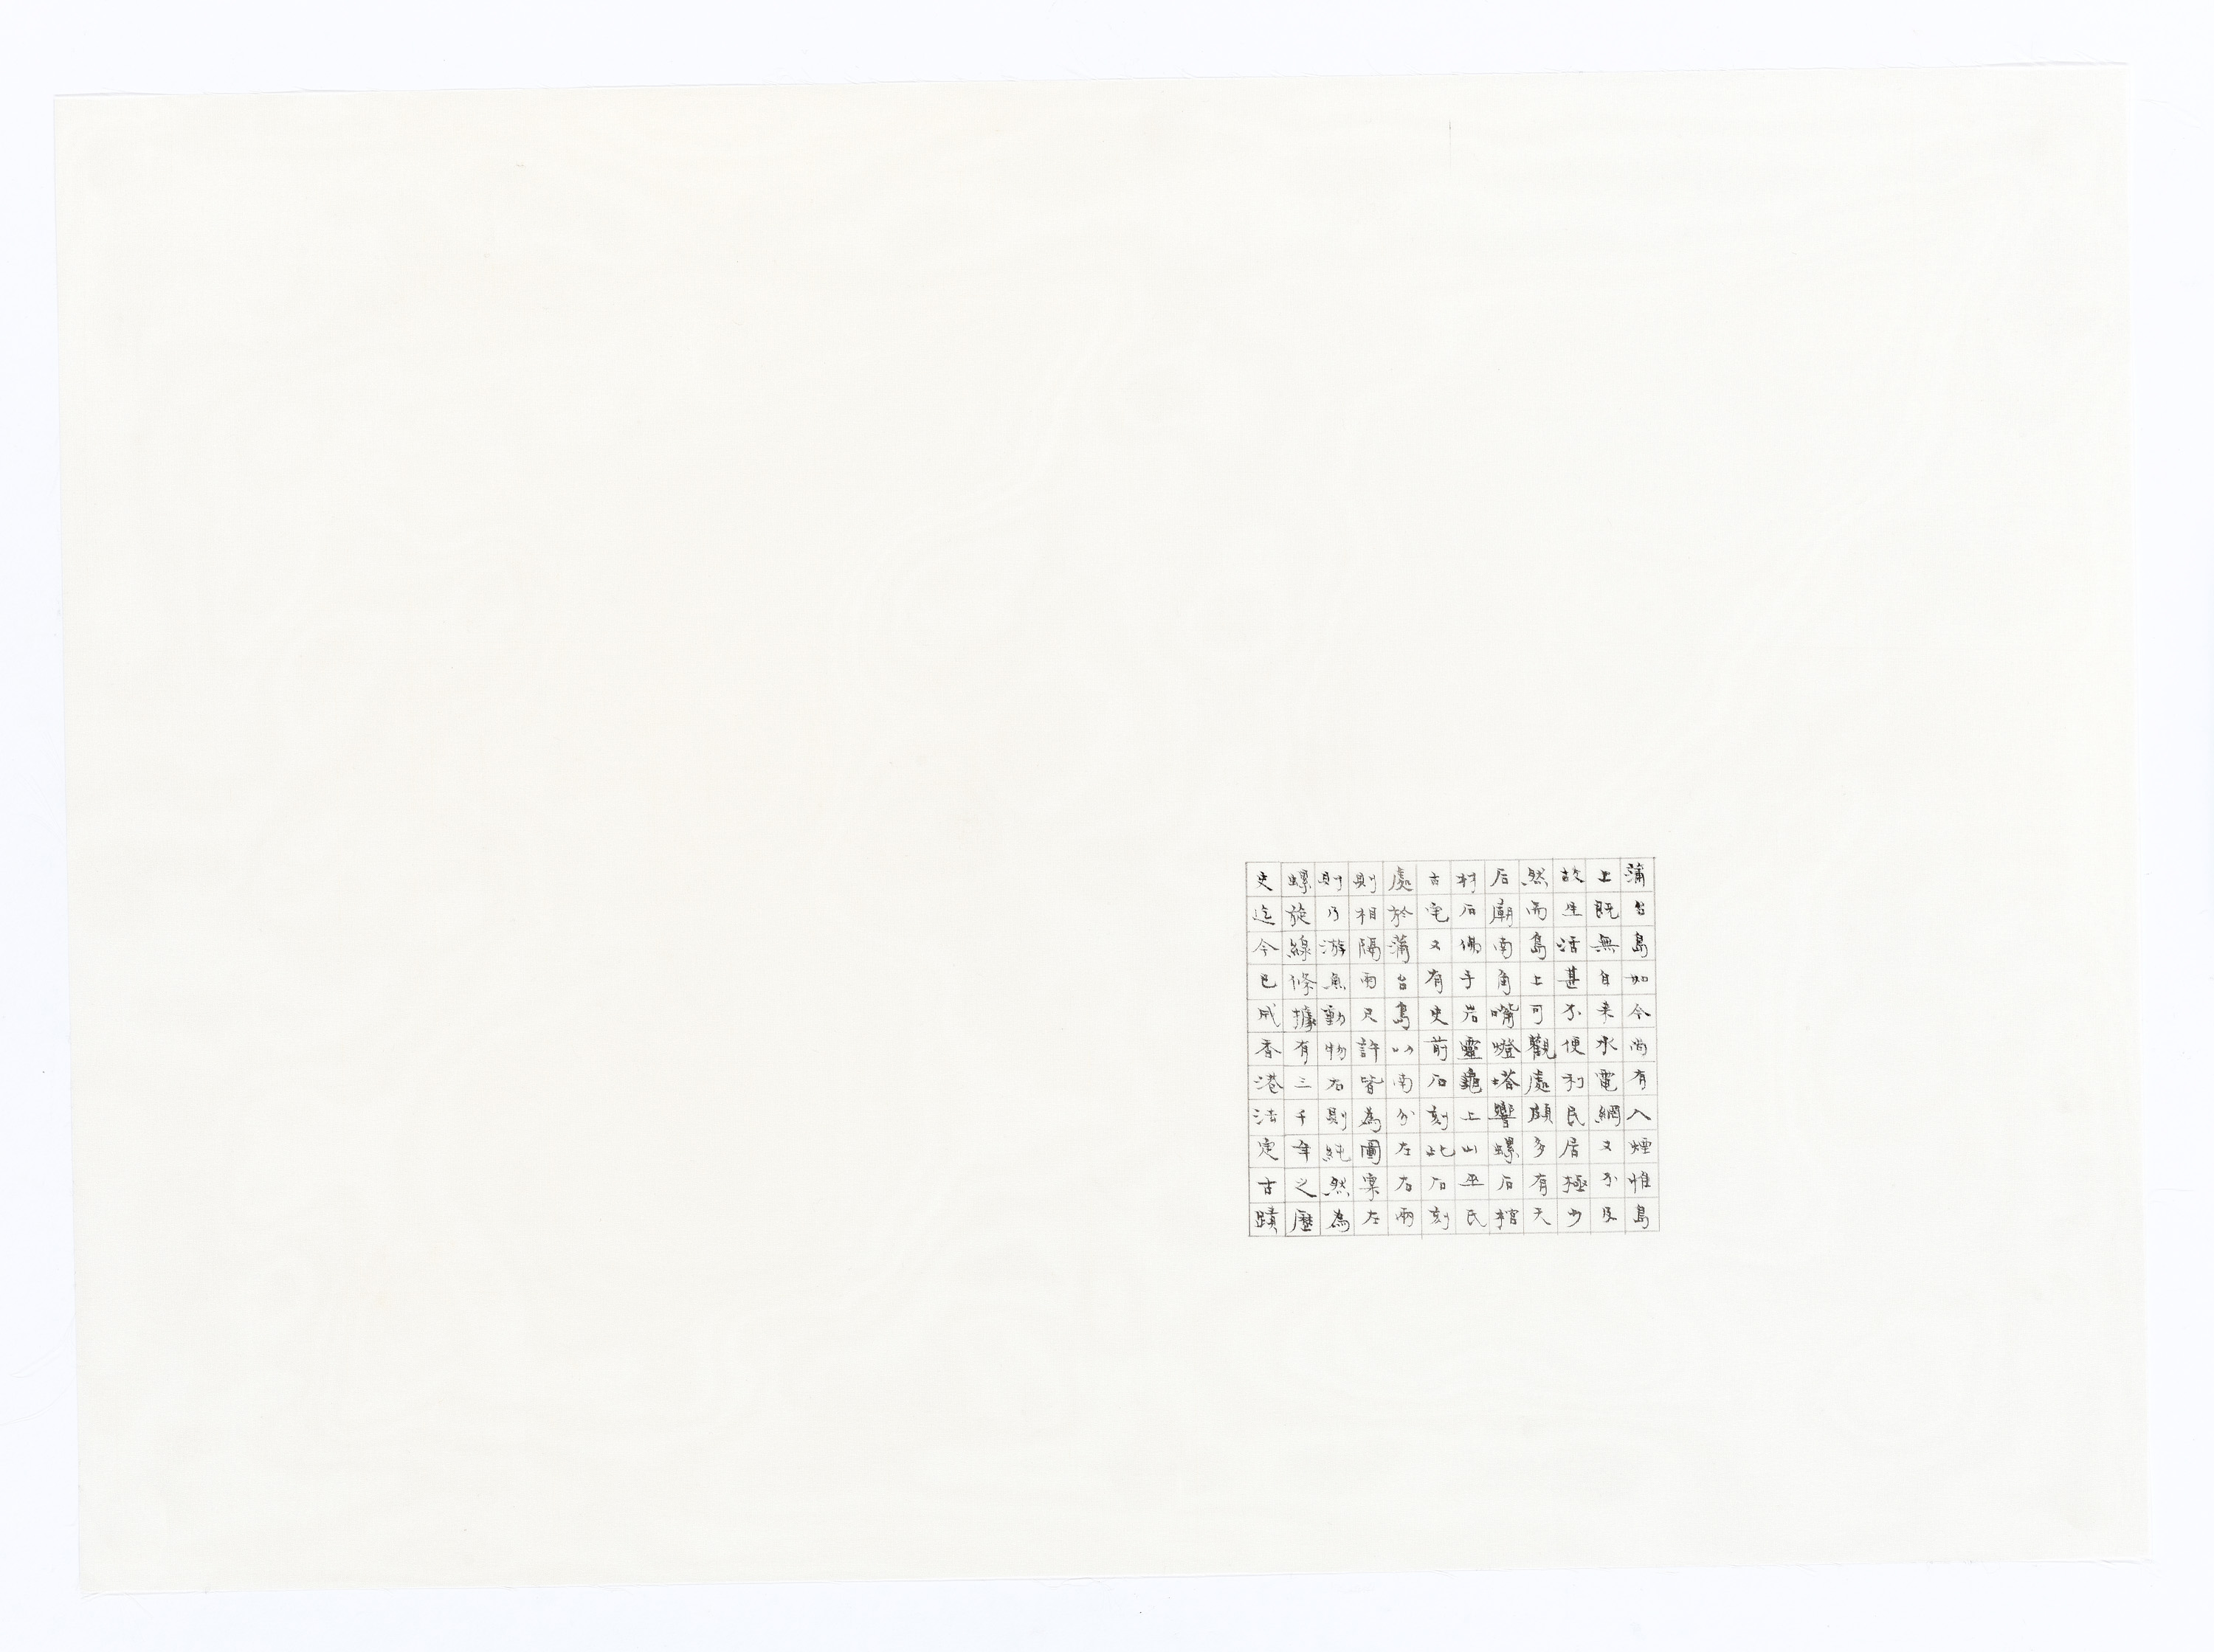 蒲台島如今尚有人煙惟島
上既無自来水電網又不及
故生活甚不便利民居極少
然而島上可觀處頗多有天
后廟南角嘴燈塔響螺石棺
材石佛手岩靈龜上山巫氏
古宅又有史前石刻此石刻
處於蒲台島以南分左右兩
則相隔兩尺許皆為圖案左
則乃游魚動物右則純然為
螺旋線條據有三千年之歷
史迄今已成香港法定古蹟